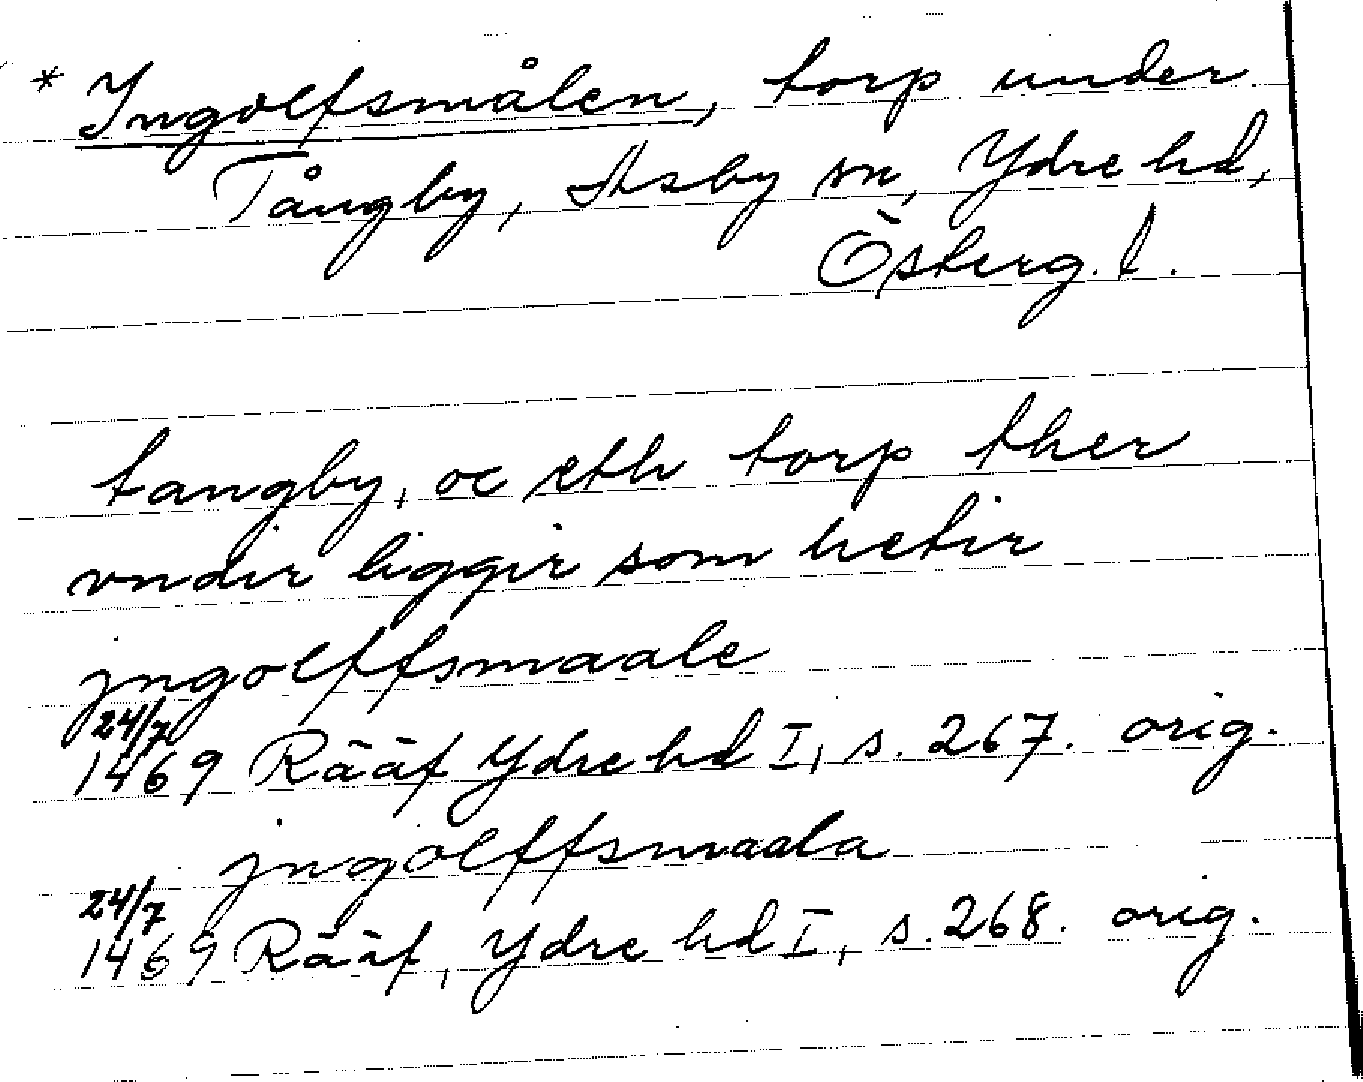 * Ingolfsmålen, torp under
Tångby, Asby sn, Ydre hd,
Österg. l.
tangby, oc eth torp ther
vndir liggir som hetir
jngolffsmaale
24/7
1469 Rääf Ydre hd I, s. 267. orig.
jngolffsmaala
24/7
1469 Rääf, Ydre hd I, s. 268. orig.